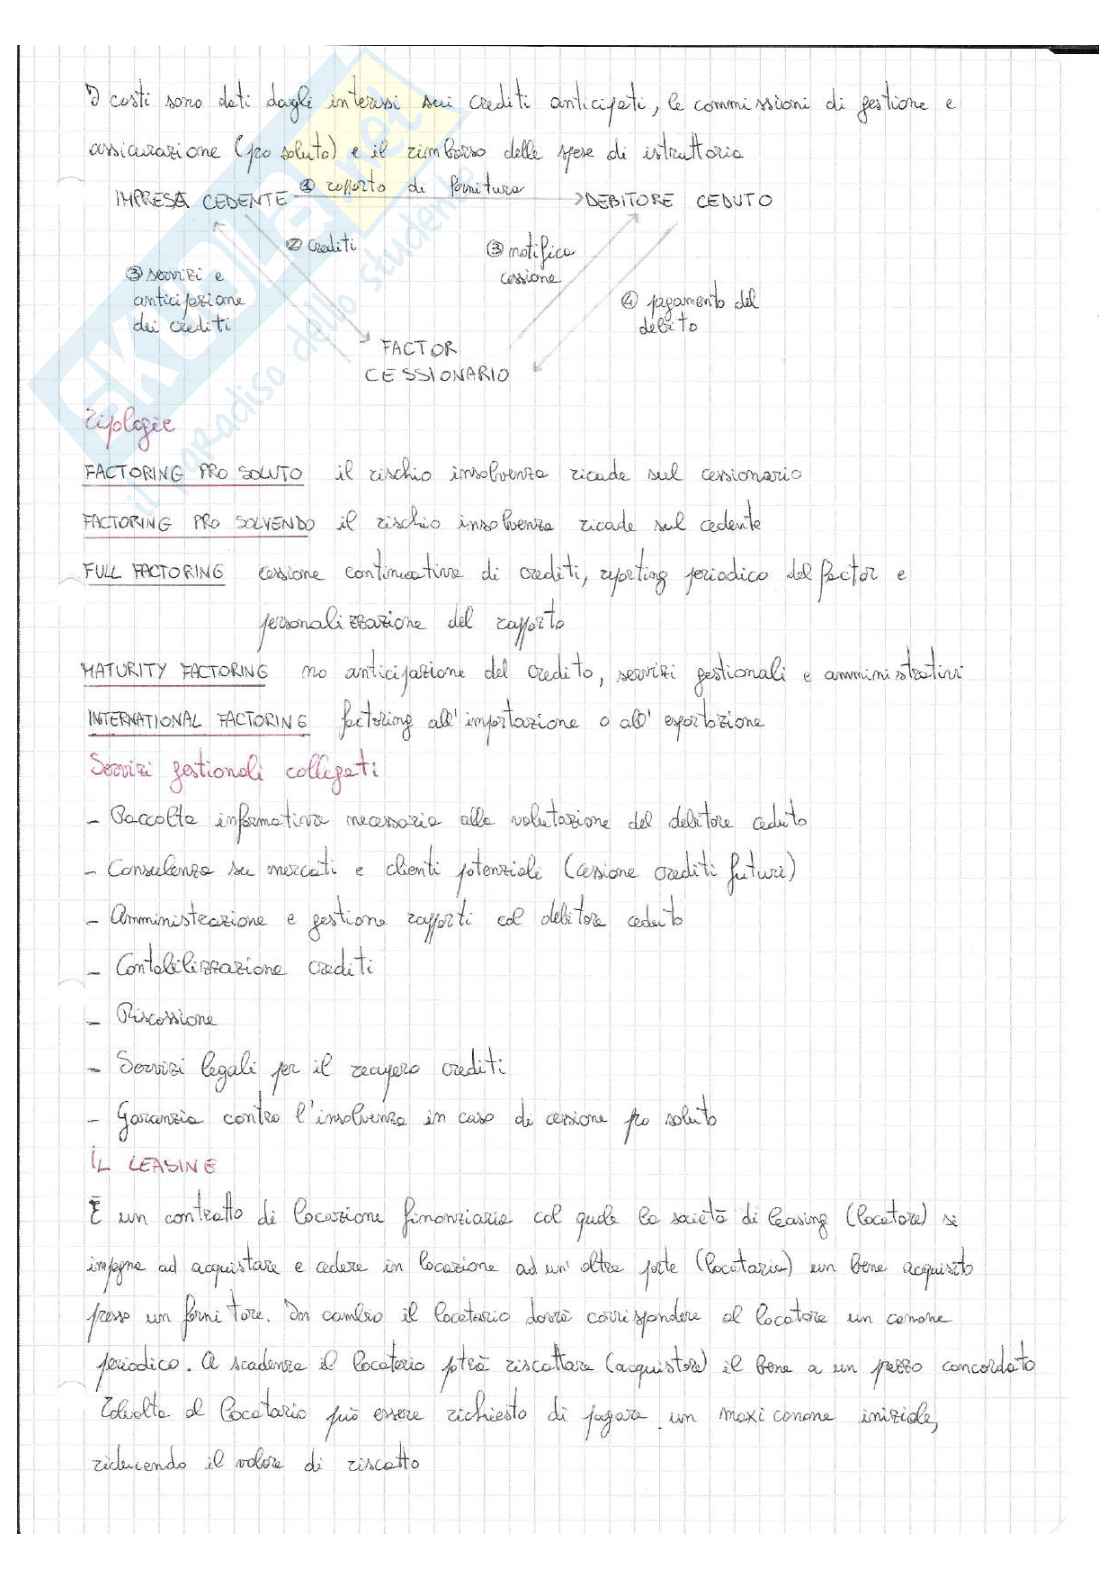 I costi sono dati dagli interessi sui crediti anticipati, le commissioni di gestione e
assicurazione (pro soluto) e il rimborso delle spese di istruttoria
IMPRESA CEDENTE ① rapporto di fornitura DEBITORE CEDUTO
② crediti
③ notifica
cessione
③ servizi e
anticipazione
dei crediti
④ pagamento del
debito
FACTOR
CESSIONARIO
SKUOLA.net
il paradiso dello studente
Tipologie
FACTORING PRO SOLUTO il rischio insolvenza ricade sul cessionario
FACTORING PRO SOLVENDO il rischio insolvenza ricade sul cedente
FULL FACTORING cessione continuativa di crediti, reporting periodico del factor e
personalizzazione del rapporto
MATURITY FACTORING no anticipazione del credito, servizi gestionali e amministrativi
INTERNATIONAL FACTORING factoring all'importazione o all'esportazione
Servizi gestionali collegati
- Raccolta informativa necessaria alla valutazione del debitore ceduto
- Consulenza su mercati e clienti potenziali (cessione crediti futuri)
- Amministrazione e gestione rapporti col debitore ceduto
- Contabilizzazione crediti
- Riscossione
- Servizi legali per il recupero crediti
- Garanzia contro l'insolvenza in caso di cessione pro soluto
IL LEASING
È un contratto di locazione finanziaria col quale la società di leasing (locatore) si
impegna ad acquistare e cedere in locazione ad un'altra parte (locataria) un bene acquisito
presso un fornitore. In cambio il locatario dovrà corrispondere al locatore un canone
periodico. A scadenza il locatario potrà riscattare (acquistare) il bene a un prezzo concordato
Talvolta al locatario può essere richiesto di pagare un maxi canone iniziale,
riducendo il valore di riscatto